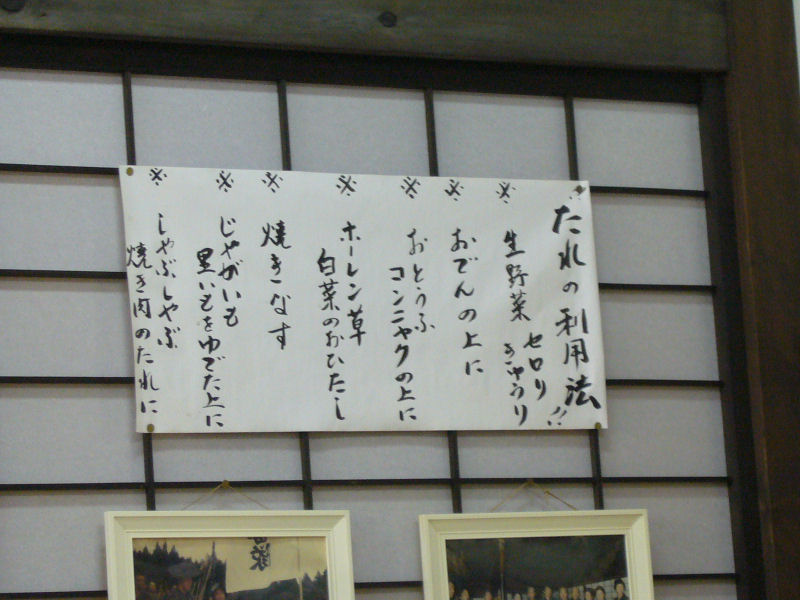 たれの利用法!!
※ 生野菜 セロリ
きゅうり
※ おでんの上に
※ おとうふ
コンニャクの上に
※ ホーレン草
白菜のおひたし
※ 焼きなす
※ じゃがいも
里いもをゆでた上に
※ しゃぶしゃぶ
焼き肉のたれに